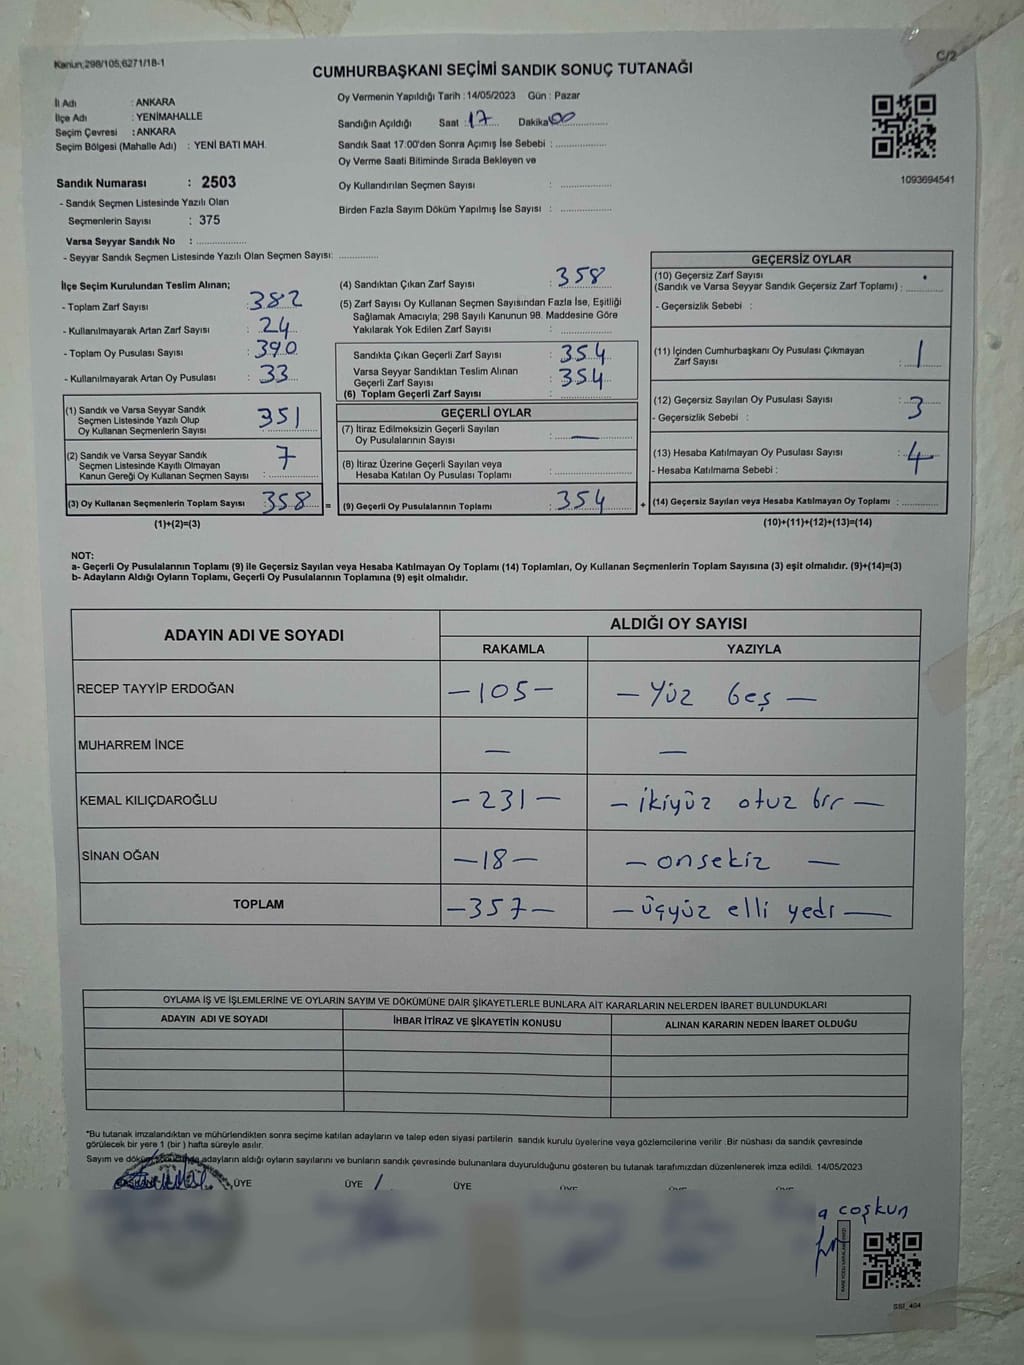 Kanun;298/105,6271/18-1
C/2
CUMHURBAŞKANI SEÇİMİ SANDIK SONUÇ TUTANAĞI
İl Adı : ANKARA
İlçe Adı : YENİMAHALLE
Seçim Çevresi : ANKARA
Seçim Bölgesi (Mahalle Adı) : YENİ BATI MAH.
Sandık Numarası : 2503
- Sandık Seçmen Listesinde Yazılı Olan
Seçmenlerin Sayısı : 375
Varsa Seyyar Sandık No : ................
- Seyyar Sandık Seçmen Listesinde Yazılı Olan Seçmen Sayısı: ............
Oy Vermenin Yapıldığı Tarih : 14/05/2023 Gün : Pazar
Sandığın Açıldığı Saat : 17 Dakika 00
Sandık Saat 17:00'den Sonra Açımış İse Sebebi : ................
Oy Verme Saati Bitiminde Sırada Bekleyen ve
Oy Kullandırılan Seçmen Sayısı : ................
Birden Fazla Sayım Döküm Yapılmış İse Sayısı : ................
1093694541
İlçe Seçim Kurulundan Teslim Alınan;
- Toplam Zarf Sayısı : 382
- Kullanılmayarak Artan Zarf Sayısı : 24
- Toplam Oy Pusulası Sayısı : 390
- Kullanılmayarak Artan Oy Pusulası : 33
(1) Sandık ve Varsa Seyyar Sandık
Seçmen Listesinde Yazılı Olup
Oy Kullanan Seçmenlerin Sayısı : 351
(2) Sandık ve Varsa Seyyar Sandık
Seçmen Listesinde Kayıtlı Olmayan
Kanun Gereği Oy Kullanan Seçmen Sayısı : 7
(3) Oy Kullanan Seçmenlerin Toplam Sayısı : 358 =
(1)+(2)=(3)
(4) Sandıktan Çıkan Zarf Sayısı : 358
(5) Zarf Sayısı Oy Kullanan Seçmen Sayısından Fazla İse, Eşitliği
Sağlamak Amacıyla; 298 Sayılı Kanunun 98. Maddesine Göre
Yakılarak Yok Edilen Zarf Sayısı : ................
Sandıkta Çıkan Geçerli Zarf Sayısı : 354
Varsa Seyyar Sandıktan Teslim Alınan
Geçerli Zarf Sayısı : 354
(6) Toplam Geçerli Zarf Sayısı : ................
GEÇERLİ OYLAR
(7) İtiraz Edilmeksizin Geçerli Sayılan
Oy Pusulalarının Sayısı : —
(8) İtiraz Üzerine Geçerli Sayılan veya
Hesaba Katılan Oy Pusulası Toplamı : ................
(9) Geçerli Oy Pusulalarının Toplamı : 354 +
GEÇERSİZ OYLAR
(10) Geçersiz Zarf Sayısı
(Sandık ve Varsa Seyyar Sandık Geçersiz Zarf Toplamı) : ..........
- Geçersizlik Sebebi :
(11) İçinden Cumhurbaşkanı Oy Pusulası Çıkmayan
Zarf Sayısı : 1
(12) Geçersiz Sayılan Oy Pusulası Sayısı : 3
- Geçersizlik Sebebi :
(13) Hesaba Katılmayan Oy Pusulası Sayısı : 4
- Hesaba Katılmama Sebebi :
(14) Geçersiz Sayılan veya Hesaba Katılmayan Oy Toplamı : ..........
(10)+(11)+(12)+(13)=(14)
NOT:
a- Geçerli Oy Pusulalarının Toplamı (9) ile Geçersiz Sayılan veya Hesaba Katılmayan Oy Toplamı (14) Toplamları, Oy Kullanan Seçmenlerin Toplam Sayısına (3) eşit olmalıdır. (9)+(14)=(3)
b- Adayların Aldığı Oyların Toplamı, Geçerli Oy Pusulalarının Toplamına (9) eşit olmalıdır.
ADAYIN ADI VE SOYADI
ALDIĞI OY SAYISI
RAKAMLA YAZIYLA
RECEP TAYYİP ERDOĞAN — 105 — — Yüz beş —
MUHARREM İNCE — —
KEMAL KILIÇDAROĞLU — 231 — — ikiyüz otuz bir —
SİNAN OĞAN — 18 — — onsekiz —
TOPLAM — 357 — — üçyüz elli yedi —
OYLAMA İŞ VE İŞLEMLERİNE VE OYLARIN SAYIM VE DÖKÜMÜNE DAİR ŞİKAYETLERLE BUNLARA AİT KARARLARIN NELERDEN İBARET BULUNDUKLARI
ADAYIN ADI VE SOYADI İHBAR İTİRAZ VE ŞİKAYETİN KONUSU ALINAN KARARIN NEDEN İBARET OLDUĞU
*Bu tutanak imzalandıktan ve mühürlendikten sonra seçime katılan adayların ve talep eden siyasi partilerin sandık kurulu üyelerine veya gözlemcilerine verilir .Bir nüshası da sandık çevresinde
görülecek bir yere 1 (bir ) hafta süreyle asılır.
Sayım ve döküm sonucunda adayların aldığı oyların sayılarını ve bunların sandık çevresinde bulunanlara duyurulduğunu gösteren bu tutanak tarafımızdan düzenlenerek imza edildi. 14/05/2023
ÜYE ÜYE ÜYE
a coşkun
SSI_404